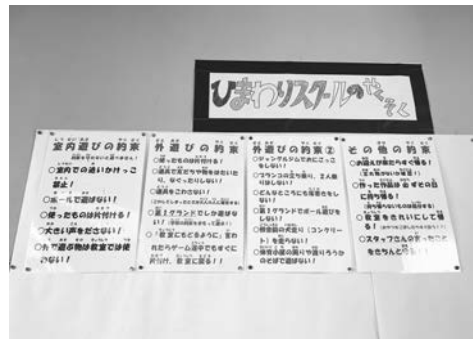 ひまわりスクールのやくそく
室内遊びの約束
○室内での追いかけっこ
禁止！
○ボールで遊ばない！
○使ったものは片付ける！
○大きい声をださない！
○外で遊ぶ物は教室では使
わない！
外遊びの約束
○使ったものは片付ける！
○道具で友だちや物をはたいた
り、なぐったりしない！
○道具をこわさない！
○第1グランドでしか遊ばな
い！
○「教室にもどるように」言わ
れたらゲーム途中でもすぐに
片づけ、教室に戻る！！
外遊びの約束②
○ジャングルジムでおにごっこ
をしない！
○ブランコの立ち乗り、2人乗
りはしない！
○どんなところにも落書きをし
ない！
○第1グランドでボール遊びを
しない！
その他の約束
○お迎えが来たらすぐ帰る！
○作った作品は必ずその日
に持ち帰る！
○教室をきれいにして帰
る！
○スタッフさんの言ったこと
をきちんと守る！！